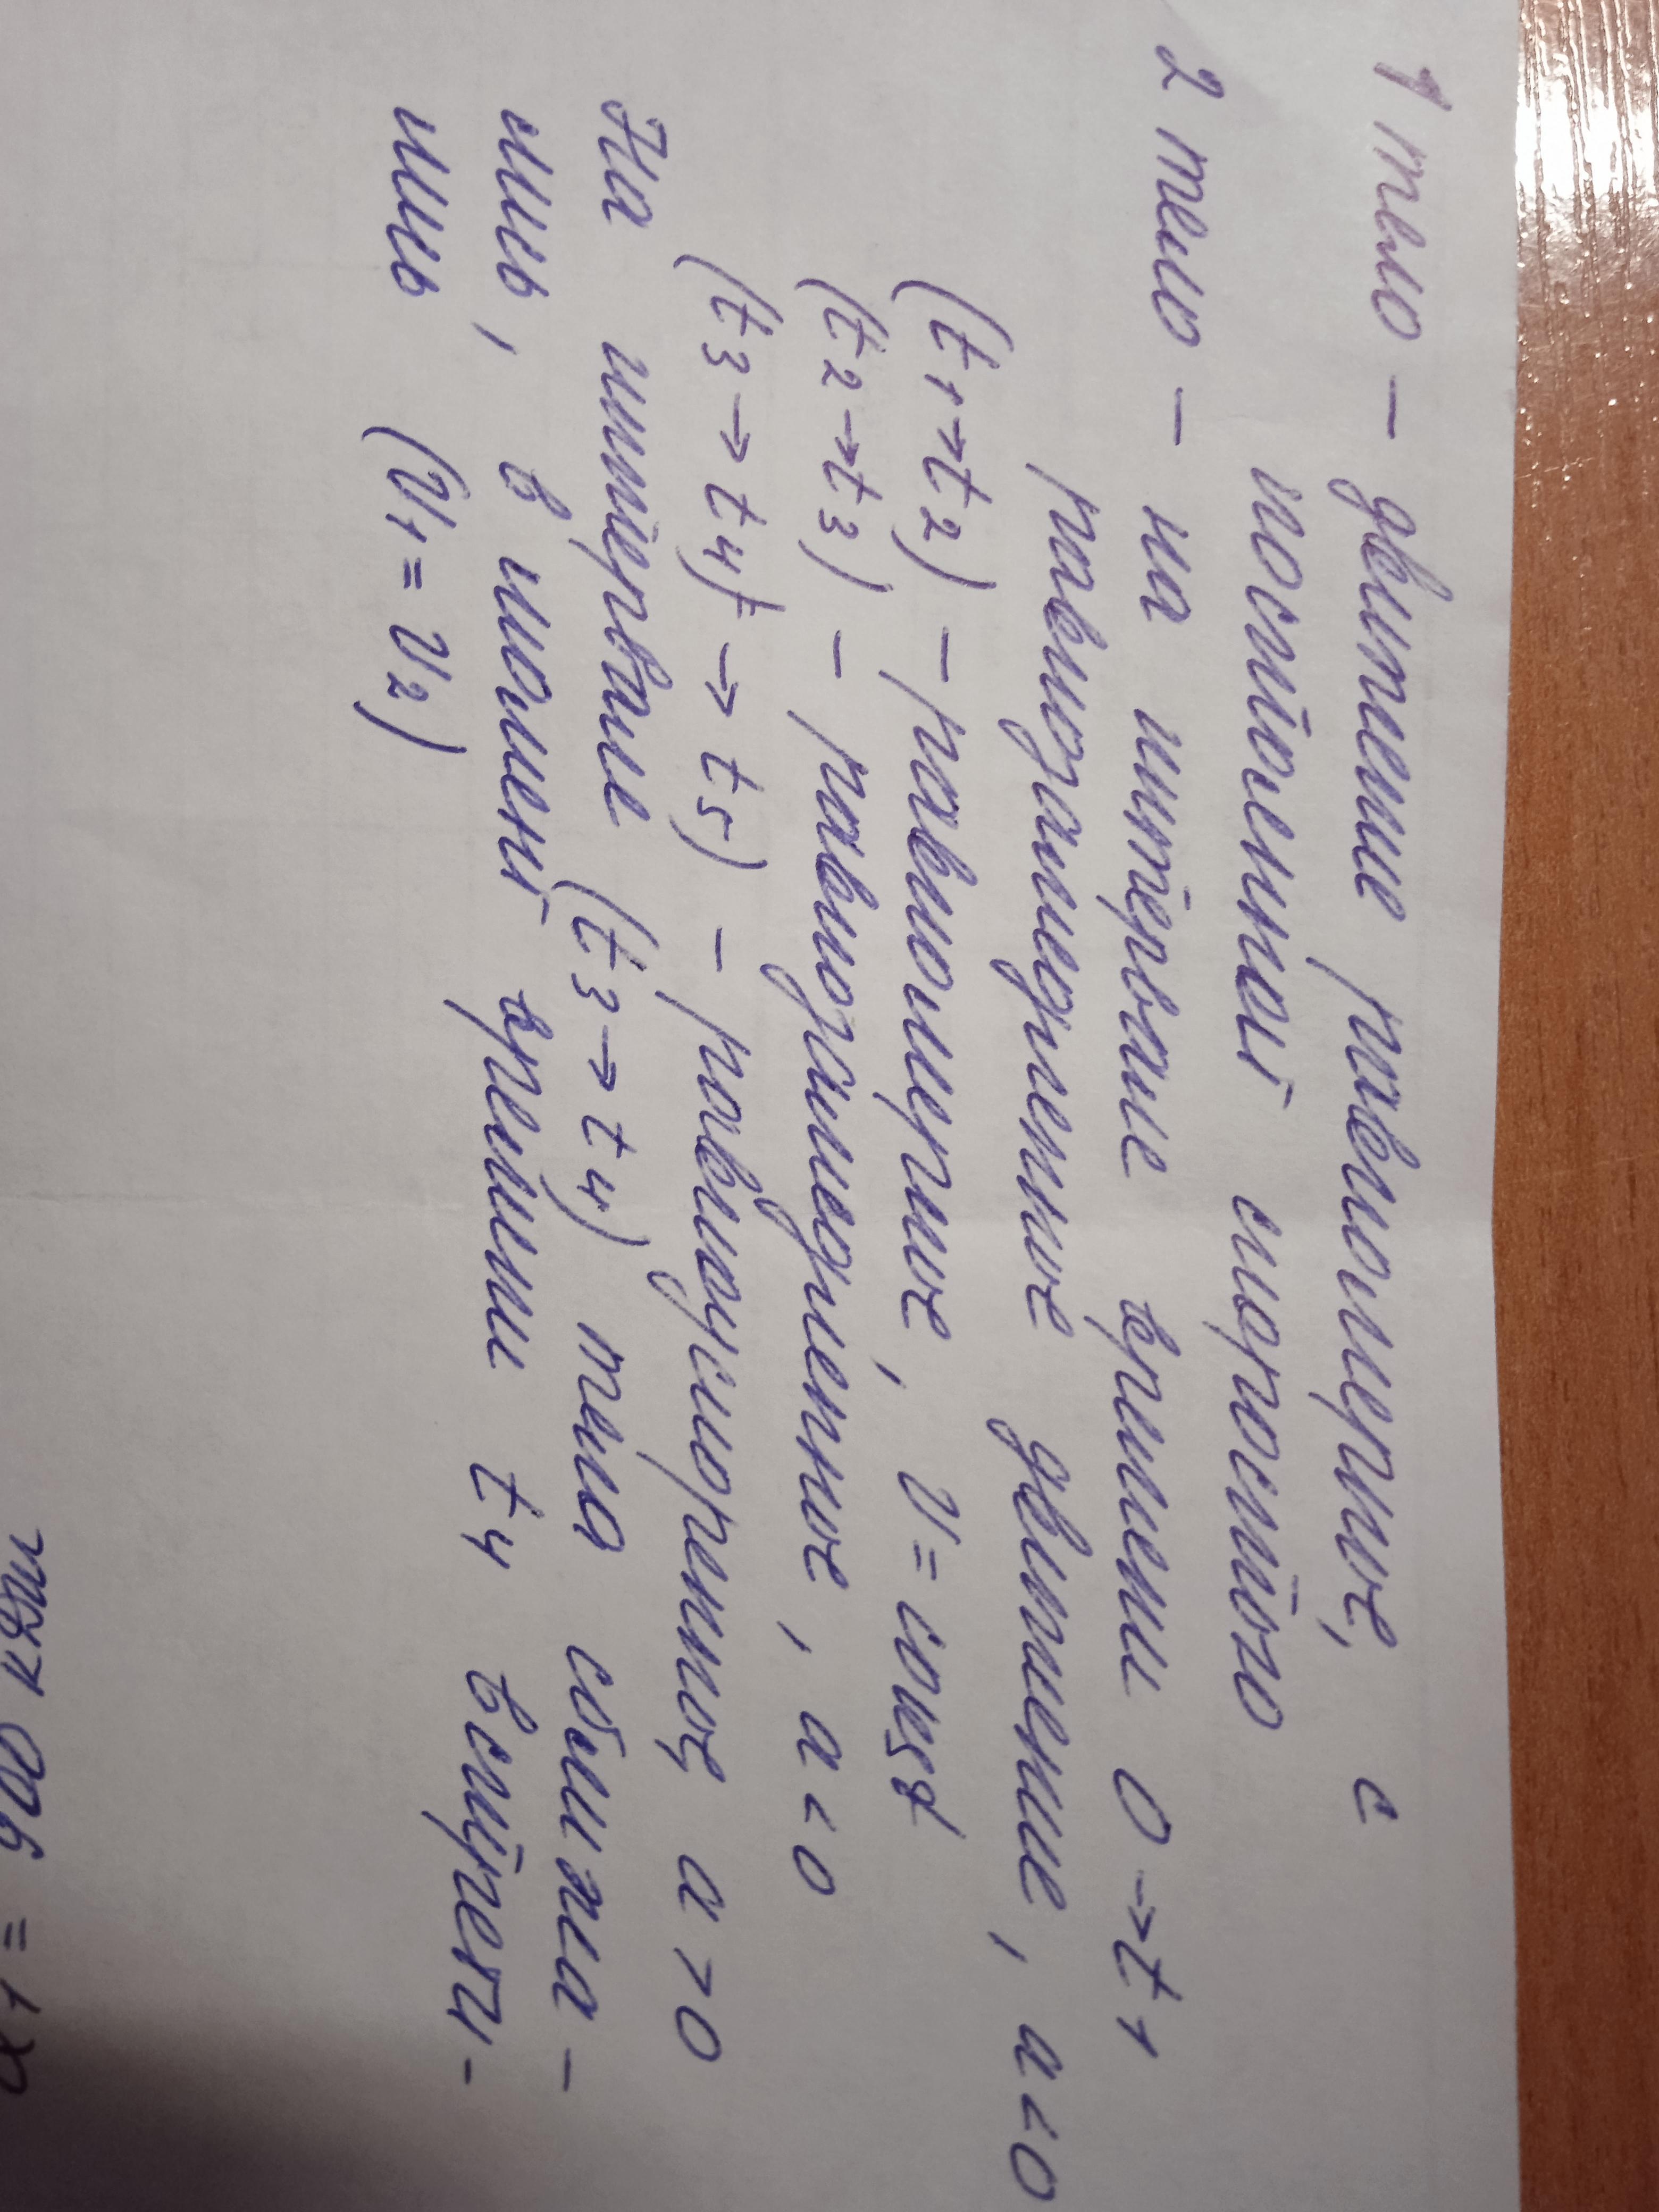 1 тело – движение равномерное, с
постоянной скоростью
2 тело – на интервале времени 0→t1
равнозамедленное движение, a<0
(t1→t2) – равномерное, v = const
(t2→t3) – равнозамедленное, a<0
(t3→t4)→t5) – равноускоренное a>0
На интервале (t3→t4) тела сближа-
лись, в момент времени t4 встрети-
лись (v1 = v2)
= 90 км